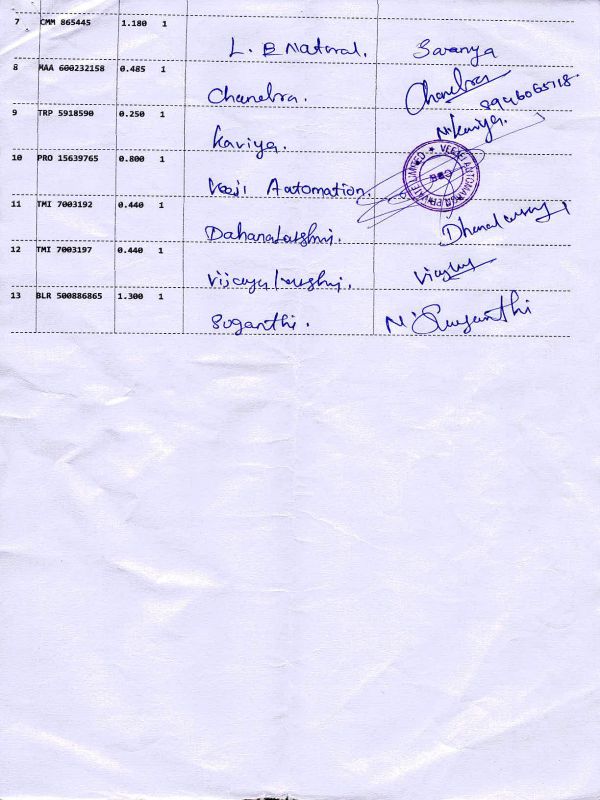 7 CMM 865445 1.180 1
L. B Natoral. Saranya
8 MAA 600232158 0.485 1
Chandra. Chandra
8946065118
9 TRP 5918590 0.250 1
Kaviya. N. Kaviya.
10 PRO 15639765 0.800 1
Veeji Aatomation.
11 TMI 7003192 0.440 1
Dahanalakshmi.
12 TMI 7003197 0.440 1
Vijayalakshmi.
13 BLR 500886865 1.300 1
Suganthi. N. Suganthi